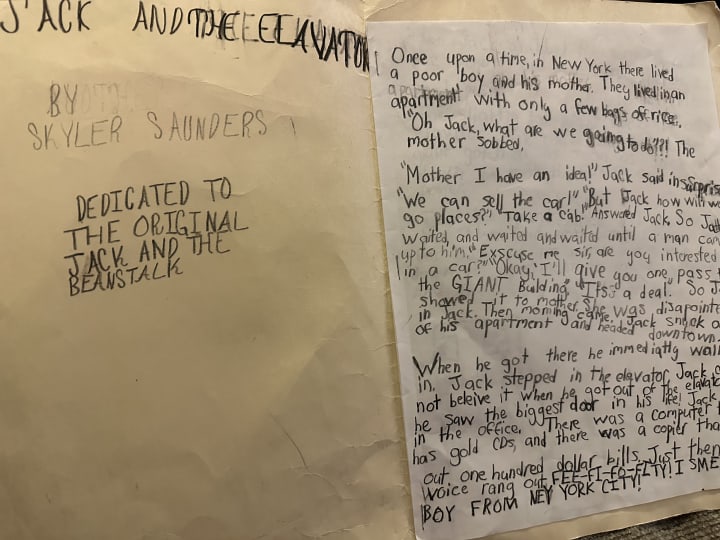 JACK AND THE ELAVATOR
BY
SKYLER SAUNDERS
DEDICATED TO
THE ORIGINAL
JACK AND THE
BEANSTALK
Once upon a time, in New York there lived
a poor boy and his mother. They lived in an
apartment with only a few bags of rice.
"Oh Jack, what are we going to do?"! The
mother sobbed.
"Mother I have an idea!" Jack said in surprise
"We can sell the car!" "But Jack how will we
go places?" "Take a cab." Answared Jack. So Jack
waited, and waited and waited until a man came
up to him. "Exscuse me sir, are you interested
in a car?" "Okay, I'll give you one, pass t
the GIANT Building." "Its a deal." So J
showed it to mother. She was disapointe
in Jack. Then morning came. Jack snuck o
of his apartment and headed downtown.
When he got there he immediatly walk
in. Jack stepped in the elavator. Jack c
not beleive it when he got out of the elavato
he saw the biggest door in his life! Jack
in the office. There was a computer t
has gold CDs, and there was a copier tha
out one hundred dollar bills. Just then
voice rang out FEE-FI-FO-FITY! I SME
BOY FROM NEW YORK CITY!